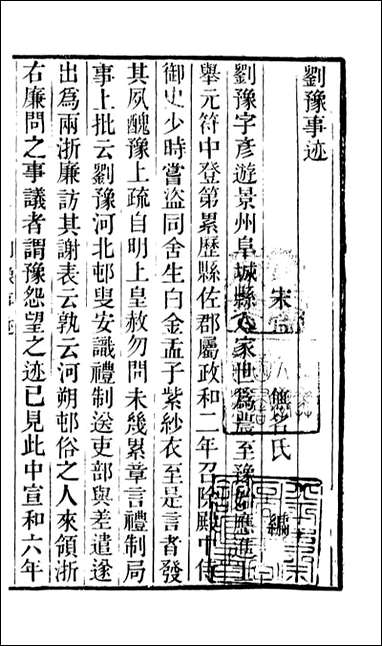 劉豫事迹
宋 無名氏 編
劉豫字彥遊景州阜城縣人家世為農至豫始應進士
舉元符中登第累歷縣佐郡屬政和二年召除殿中侍
御史少時嘗盜同舍生白金盂子紫紗衣至是言者發
其夙醜豫上疏自明上皇赦勿問未幾累章言禮制局
事上批云劉豫河北邨叟安識禮制送吏部與差遣遂
出為兩浙廉訪其謝表云孰云河朔邨俗之人來領浙
右廉問之事議者謂豫怨望之迹已見此中宣和六年